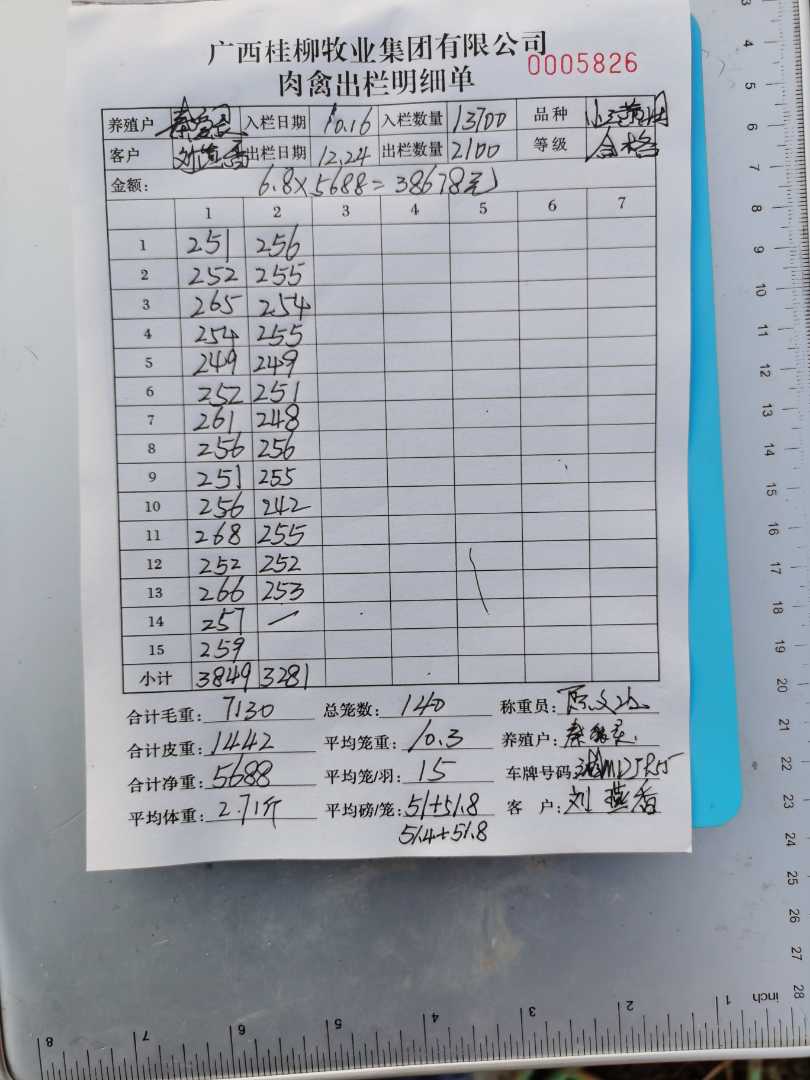 广西桂柳牧业集团有限公司
肉禽出栏明细单 0005826
养殖户 入栏日期 10.16 入栏数量 13700 品种
客户 出栏日期 12.24 出栏数量 2100 等级 合格
金额: 6.8×5688=38678元
1 2 3 4 5 6 7
1 251 256
2 252 255
3 265 254
4 254 255
5 249 249
6 252 251
7 261 248
8 256 256
9 251 255
10 256 242
11 268 255
12 252 252
13 266 253
14 257 —
15 259
小计 3849 3281
合计毛重: 7130 总笼数: 140 称重员:
合计皮重: 1442 平均笼重: 10.3 养殖户:
合计净重: 5688 平均笼/羽: 15 车牌号码:
平均体重: 2.71斤 平均磅/笼: 51+51.8 客 户: 刘燕香
51.4+51.8
3 4 5 6 7 8 9 10 11 12 13 14 15 16 17 18 19 20 21 22 23 24 25 26 27 28
8 7 6 5 4 3 2 1 inch